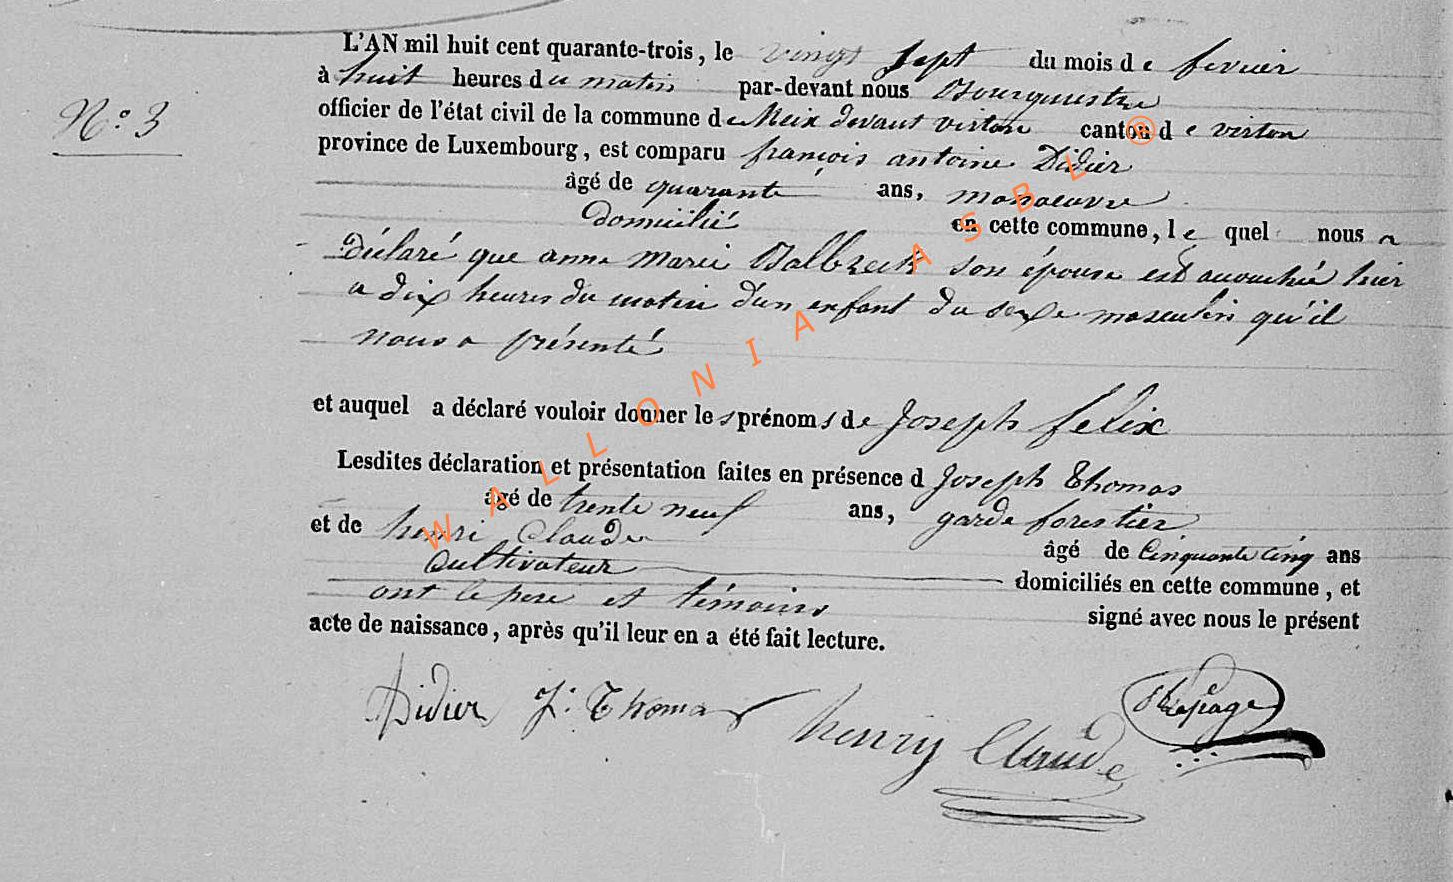 L'AN mil huit cent quarante-trois, le vingt sept du mois de fevrier
à huit heures du matin par-devant nous Bourgmestre
N.o 3
officier de l'état civil de la commune de Meix devant virton canton de virton
province de Luxembourg, est comparu françois antoine Didier
âgé de quarante ans, manoeuvre
Domicilié en cette commune, le quel nous a
Déclaré que anna Marie Balbreck son épouse est accouchée hier
a dix heures du matin d'un enfant du sexe masculin qu'il
nous a présenté
et auquel a déclaré vouloir donner les prénoms de Joseph felix
Lesdites déclaration et présentation faites en présence d Joseph Thomas
âgé de trente neuf ans, garde forestier
et de henri Claude âgé de Cinquante cinq ans
Cultivateur domiciliés en cette commune, et
ont le pere et témoins signé avec nous le présent
acte de naissance, après qu'il leur en a été fait lecture.
Didier J: Thomas henry Claude Lepage
WALLONIA ASBL ®